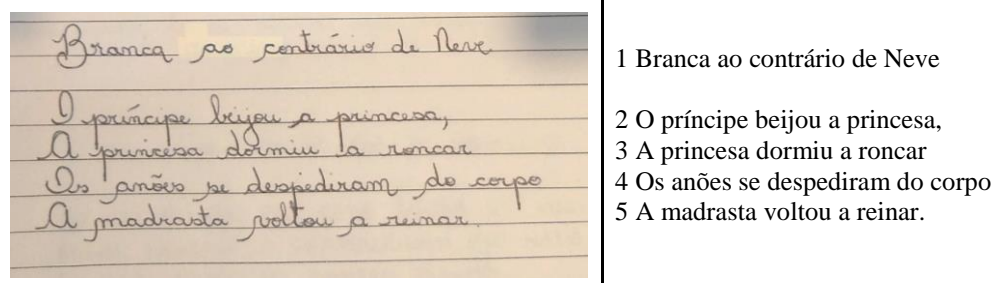 Branca ao contrário de Neve
O príncipe beijou a princesa,
A princesa dormiu a roncar
Os anões se despediram do corpo
A madrasta voltou a reinar.
1 Branca ao contrário de Neve
2 O príncipe beijou a princesa,
3 A princesa dormiu a roncar
4 Os anões se despediram do corpo
5 A madrasta voltou a reinar.